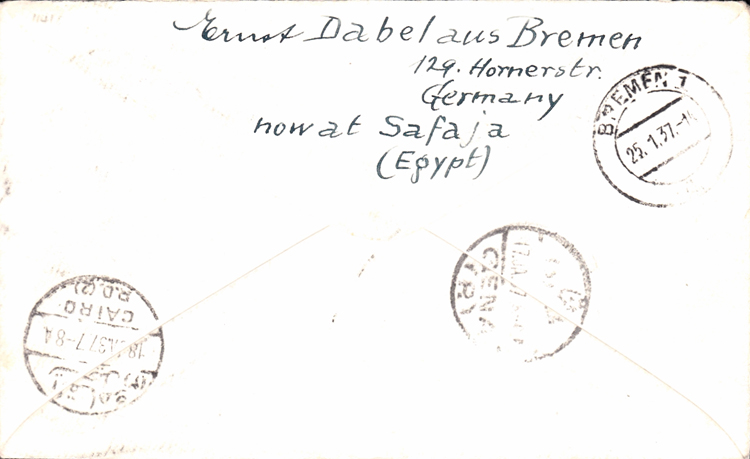 Ernst Dabel aus Bremen
129. Hornerstr.
Germany
now at Safaja
(Egypt)
BREMEN 1
25.1.37.-
QENA
CAIRO
R.D.(2)
37.7-8A